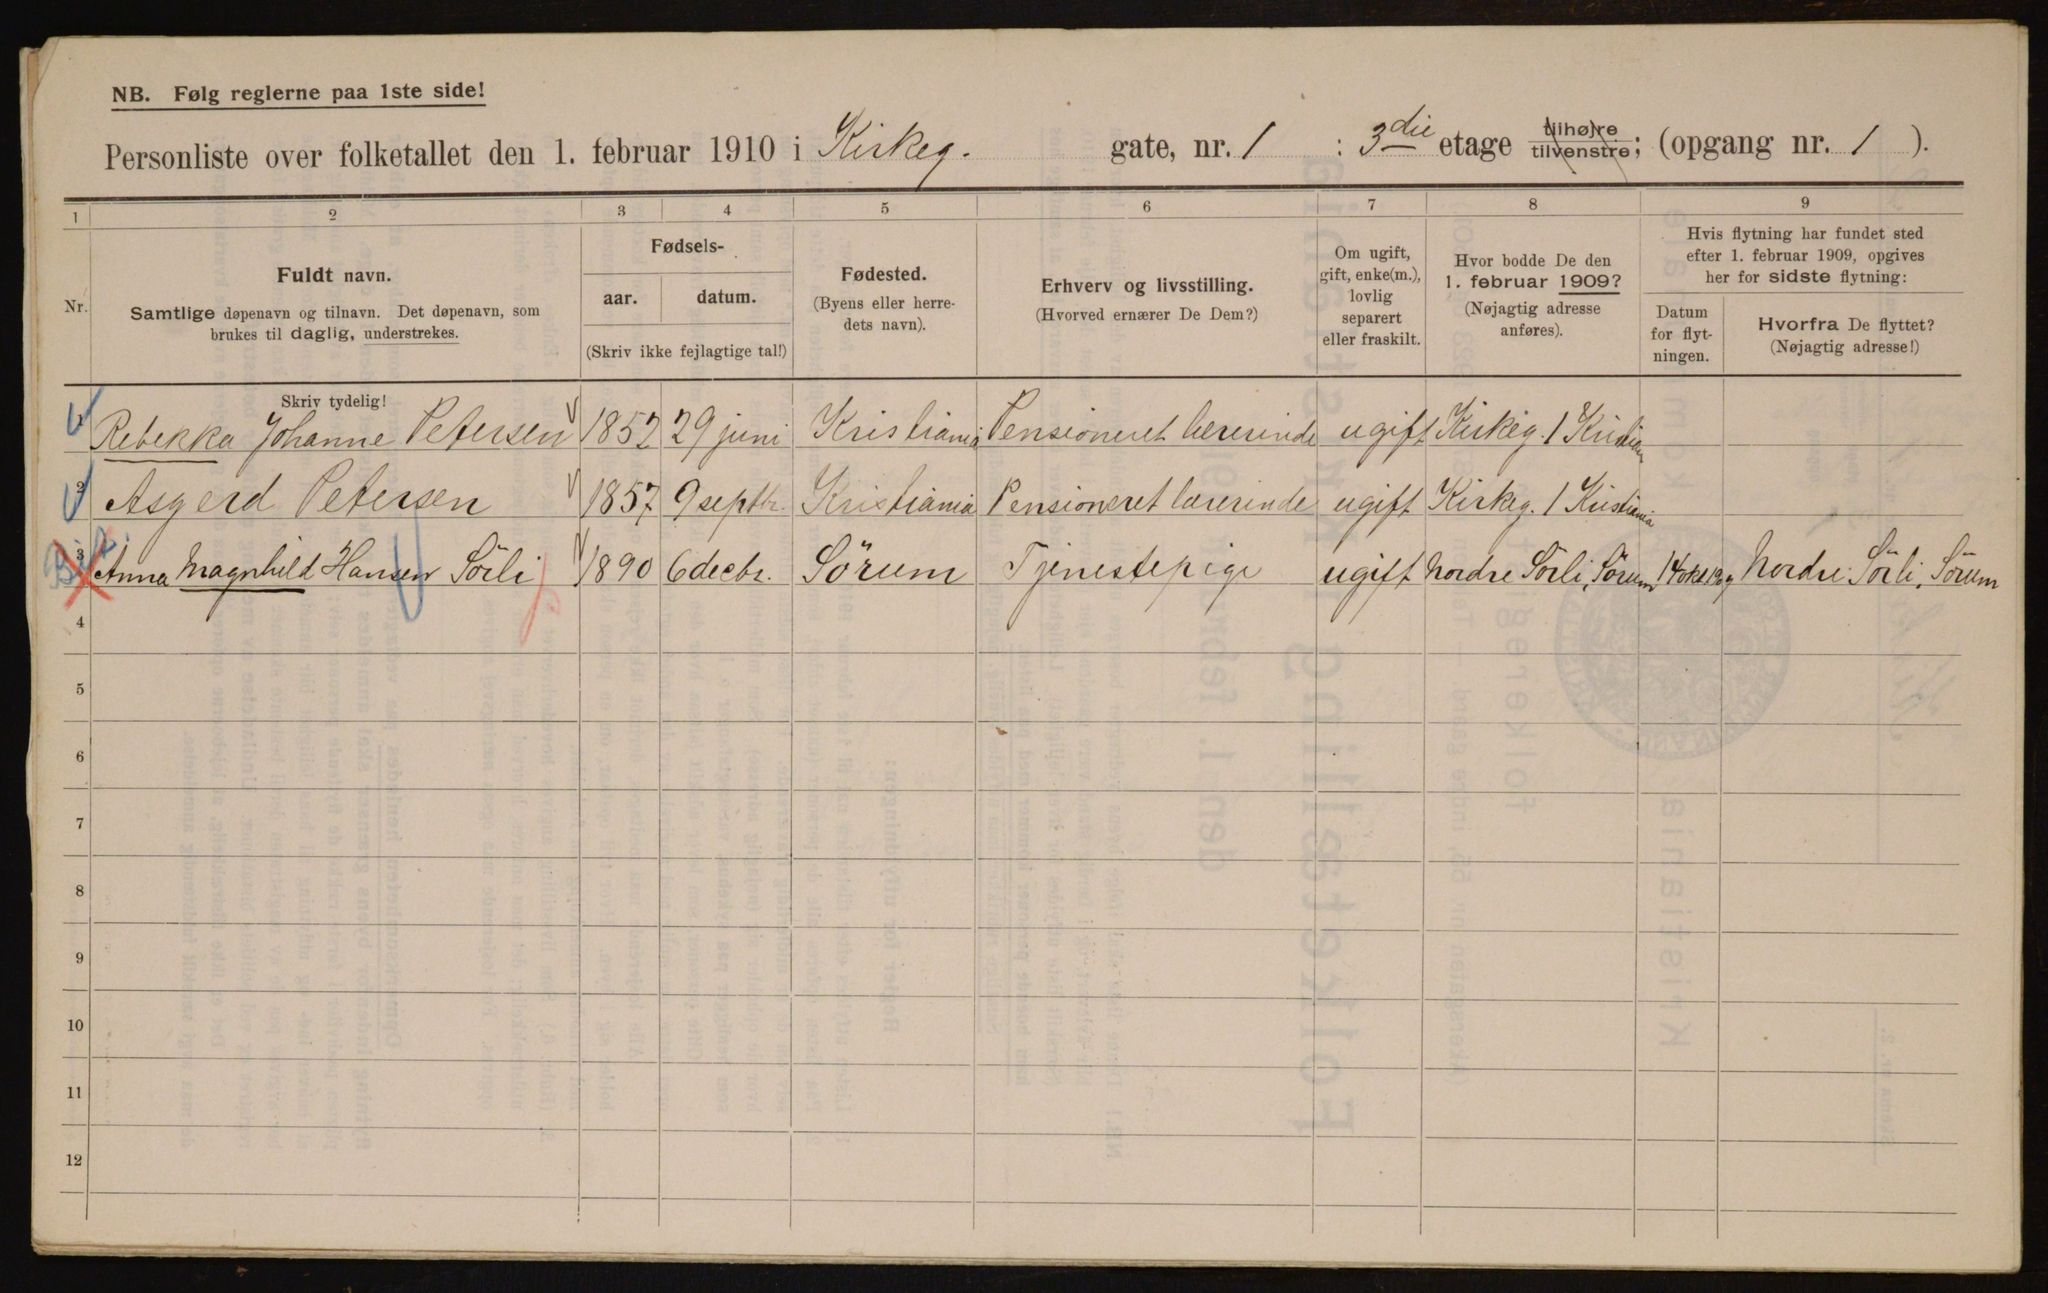 NB. Følg reglerne paa 1ste side!
Personliste over folketallet den 1. februar 1910 i Kirkeg. gate, nr. 1 : 3die etage tilhøjre tilvenstre; (opgang nr. 1 ).
1 2 3 4 5 6 7 8 9
Nr.
Fuldt navn.
Samtlige døpenavn og tilnavn. Det døpenavn, som
brukes til daglig, understrekes.
Skriv tydelig!
Fødsels-
aar. datum.
(Skriv ikke fejlagtige tal!)
Fødested.
(Byens eller herre-
dets navn).
Erhverv og livsstilling.
(Hvorved ernærer De Dem?)
Om ugift,
gift, enke(m.),
lovlig
separert
eller fraskilt.
Hvor bodde De den
1. februar 1909?
(Nøjagtig adresse
anføres).
Hvis flytning har fundet sted
efter 1. februar 1909, opgives
her for sidste flytning:
Datum
for flyt-
ningen.
Hvorfra De flyttet?
(Nøjagtig adresse!)
1 Rebekka Johanne Petersen 1852 29 juni Kristiania Pensioneret lærerinde ugift Kirkeg. 1 Kristiania
2 Asgerd Petersen 1857 9 septbr. Kristiania Pensioneret lærerinde ugift Kirkeg. 1 Kristiania
3 Anna Magnhild Hansen Sörli 1890 6 decbr. Sörum Tjenestepige ugift Nordre Sörli, Sörum 14 okt 1909 Nordre Sörli, Sörum
4
5
6
7
8
9
10
11
12